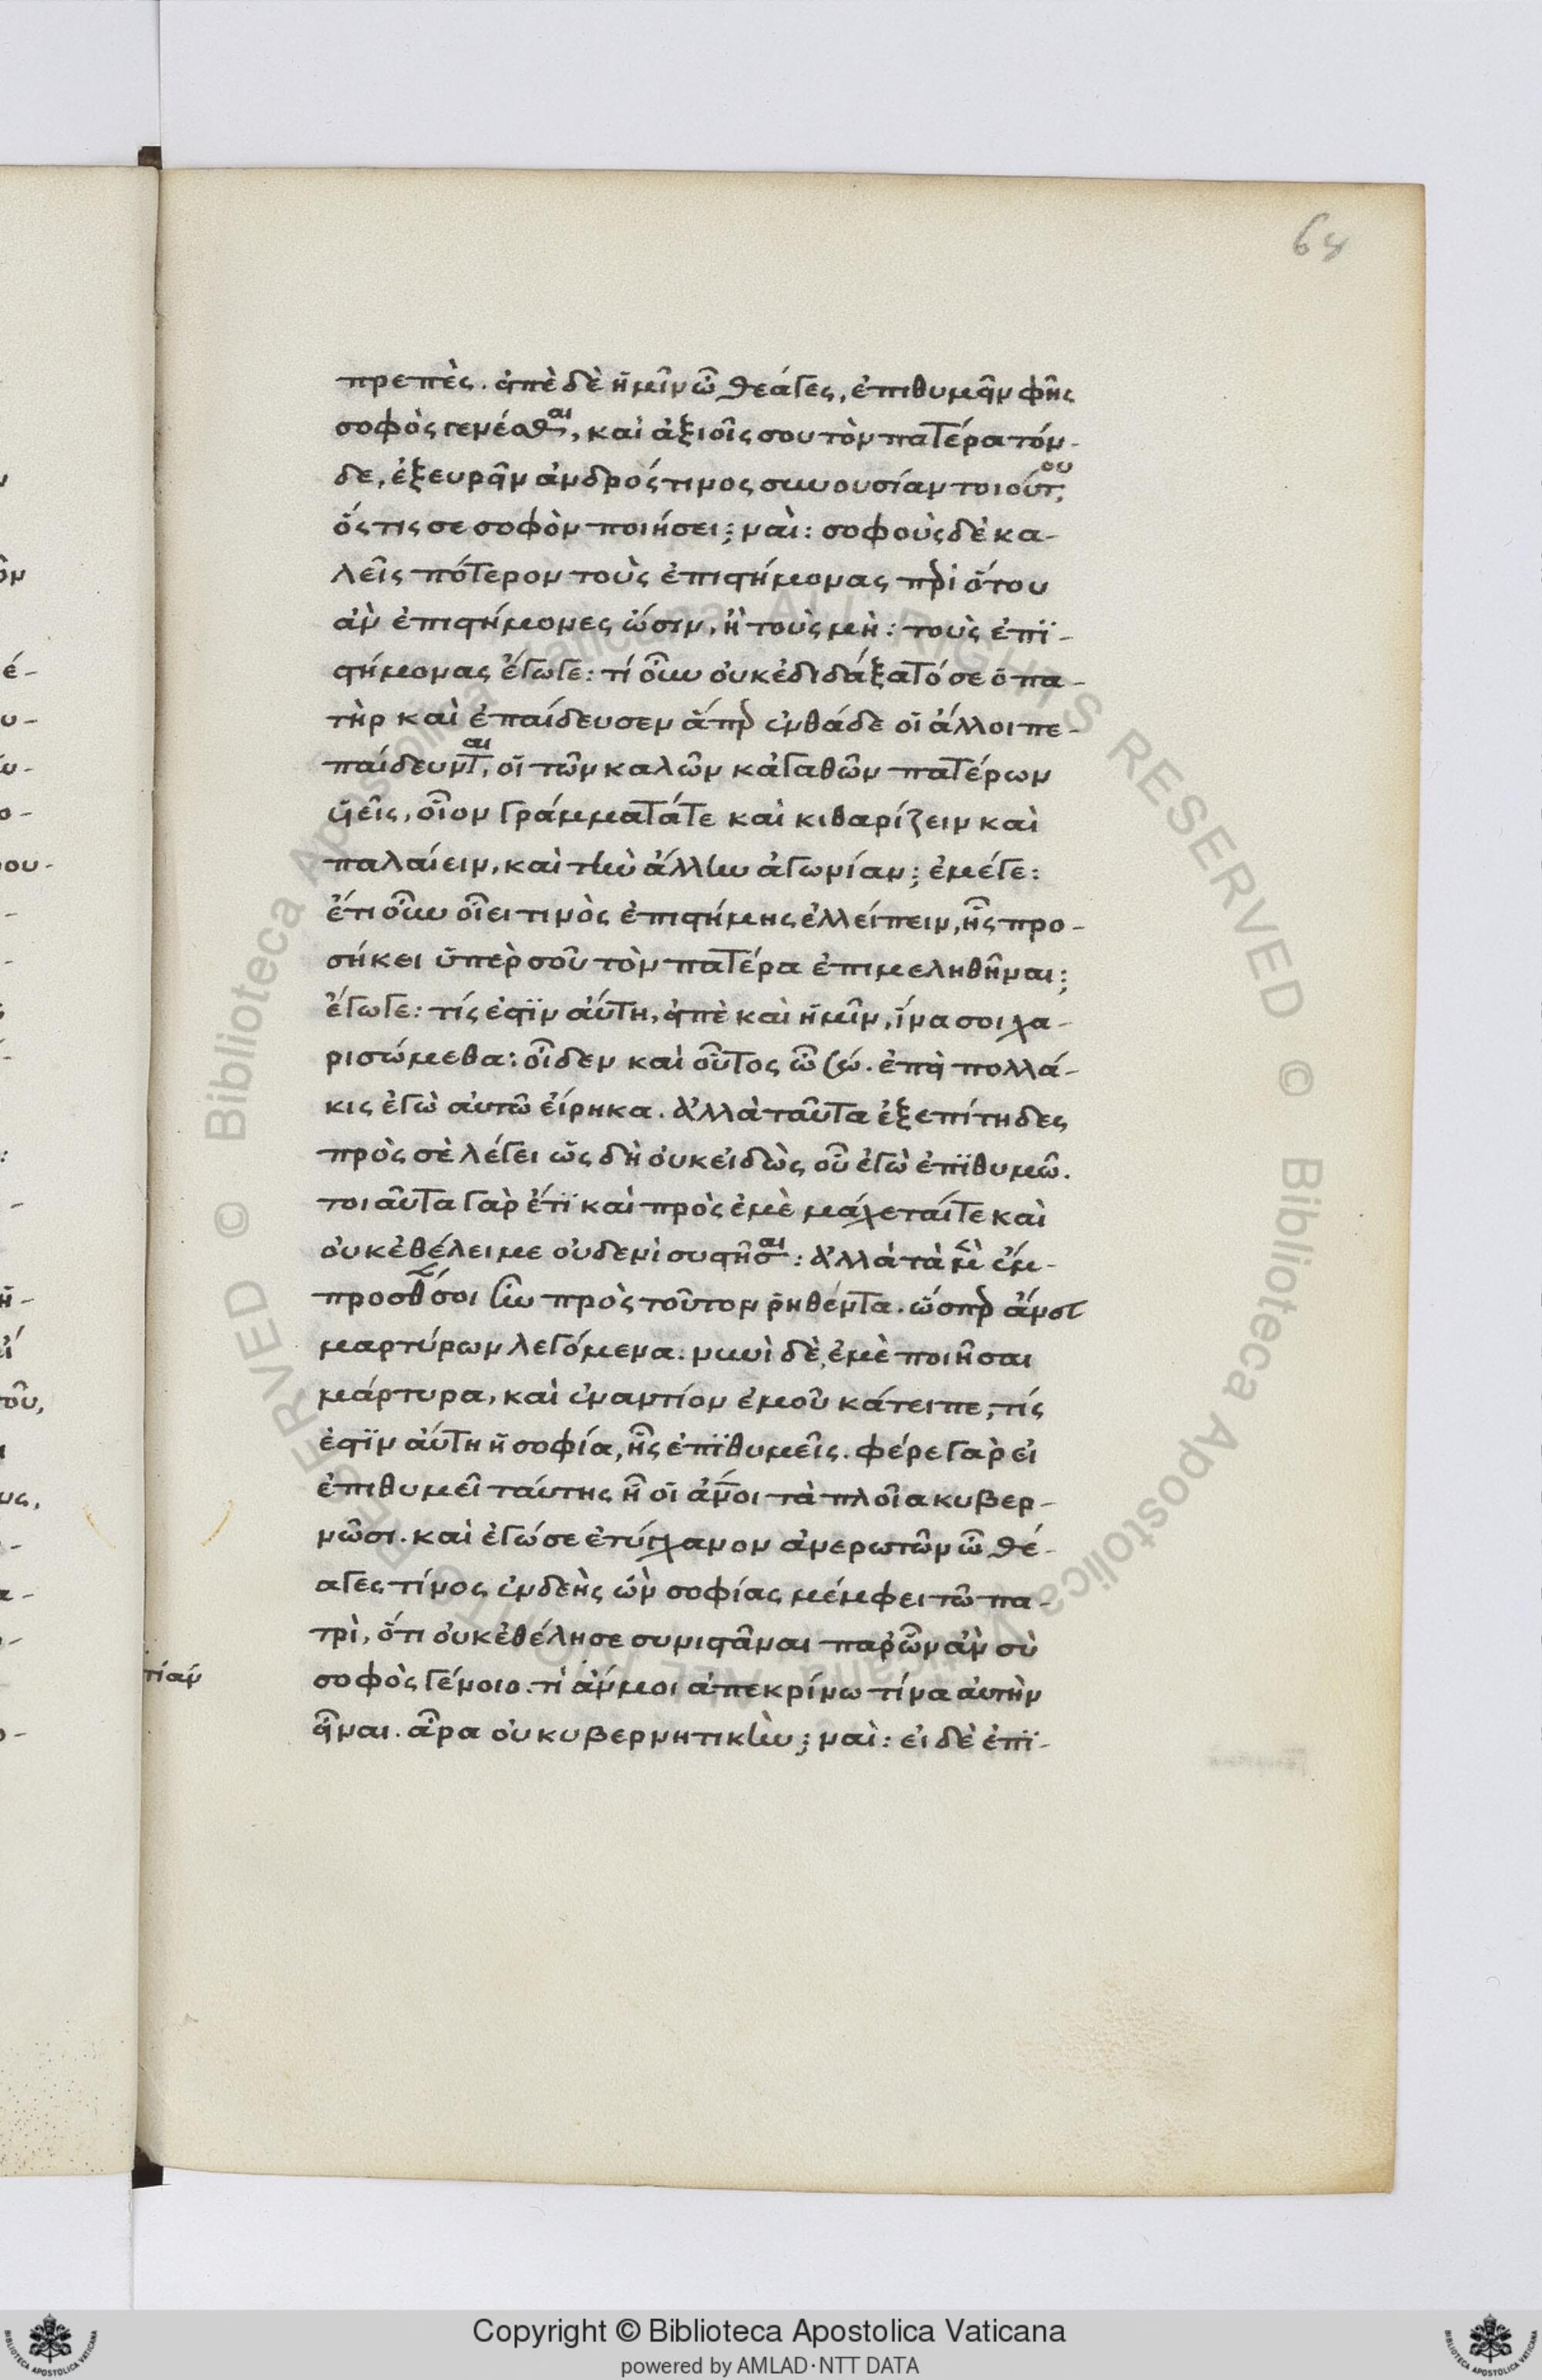 64
πρεπὲς. εἰπὲ δὲ ἡμῖν ὦ θεάγες, ἐπιθυμεῖν φῂς
σοφὸς γενέσθαι, καὶ ἀξιοῖς σου τὸν πατέρα τόν-
δε, ἐξευρεῖν ἀνδρός τινος συνουσίαν τοιούτου,
ὅς τις σε σοφὸν ποιήσει; ναὶ: σοφοὺς δὲ κα-
λεῖς πότερον τοὺς ἐπιστήμονας περὶ ὅτου
ἂν ἐπιστήμονες ὦσιν, ἢ τοὺς μὴ: τοὺς ἐπϊ-
στήμονας ἔγωγε: τί οὖν οὐκ ἐδιδάξατό σε ὁ πα-
τὴρ καὶ ἐπαίδευσεν ἅπερ ἐνθάδε οἱ ἄλλοι πε-
παίδευνται, οἱ τῶν καλῶν κἀγαθῶν πατέρων
ὑεῖς, οἷον γράμματά τε καὶ κιθαρίζειν καὶ
παλαίειν, καὶ τὴν ἄλλην ἀγωνίαν; ἐμέγε:
ἔτι οὖν οἴει τινὸς ἐπιστήμης ἐλλείπειν, ἧς προ-
σήκει ὑπὲρ σοῦ τὸν πατέρα ἐπιμεληθῆναι;
ἔγωγε: τίς ἐστϊν αὕτη, εἰπὲ καὶ ἡμῖν, ἵνα σοι χα-
ρισώμεθα: οἶδεν καὶ οὗτος ὦ σώ. ἐπεὶ πολλά-
κις ἐγὼ αὐτῶ εἴρηκα. ἀλλὰ ταῦτα ἐξεπίτηδες
πρὸς σὲ λέγει ὡς δὴ οὐκ εἰδὼς οὗ ἐγὼ ἐπϊθυμῶ.
τοιαῦτα γὰρ ἔτϊ καὶ πρὸς ἐμὲ μάχεταί τε καὶ
οὐκ ἐθέλει με οὐδενὶ συστῆσαι: ἀλλὰ τὰ μὲν ἔμ-
προσθέν σοι ἦν πρὸς τοῦτον ῥηθέντα. ὥσπερ ἄνευ
μαρτύρων λεγόμενα. νυνὶ δὲ, ἐμὲ ποιῆσαι
μάρτυρα, καὶ ἐναντίον ἐμοῦ κάτειπε, τίς
ἐστϊν αὕτη ἡ σοφία, ἧς ἐπϊθυμεῖς. φέρε γὰρ εἰ
ἐπιθυμεῖ ταύτης ᾗ οἱ ἄνοι τὰ πλοῖα κυβερ-
νῶσι. καὶ ἐγώ σε ἐτύγχανον ἀνερωτῶν ὦ θέ-
αγες τίνος ἐνδεὴς ὢν σοφίας μέμφει τῶ πα-
τρὶ, ὅτι οὐκ ἐθέλησε συνιστᾶναι παρ ὧν ἂν σὺ
σοφὸς γένοιο. τί ἄν μοι ἀπεκρίνω τίνα αὐτὴν
εἶναι. ἆρα οὐ κυβερνητικὴν; ναὶ: εἰ δὲ ἐπϊ-
Copyright © Biblioteca Apostolica Vaticana
powered by AMLAD·NTT DATA